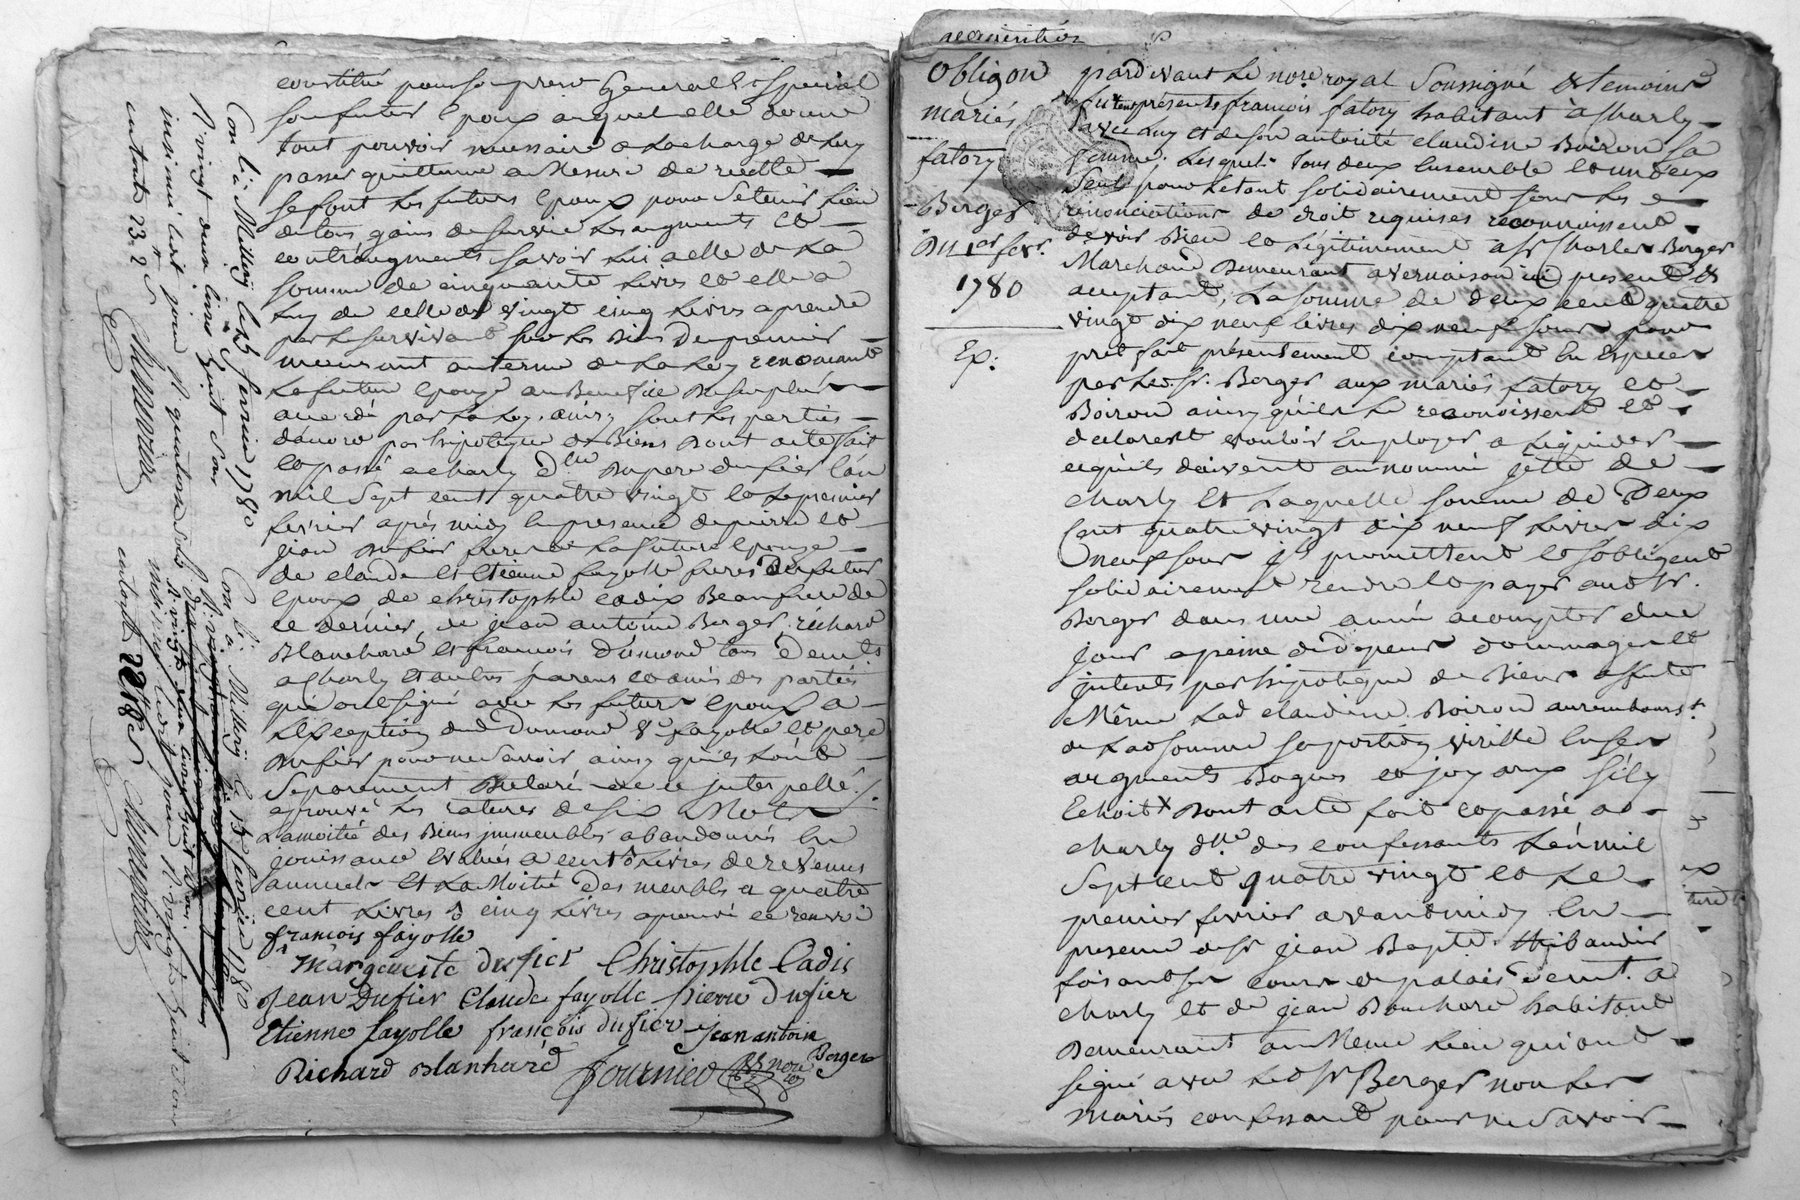 constitué pour son procr General & special
son futur Epoux auquel elle donne
tout pouvoir necessaire a la charge de luy
passer quittance a Mesure de recette
se font les futurs Epoux pour se tenir Lieu
de tous gains de survie les augments et
contraugments savoir lui a elle de la
somme de cinquante Livres et elle a
luy de celle de vingt cinq Livres a prendre
par le survivant sur les Biens du premier
mourant au terme de la Loy renoncant
la future Epouze au Benefice du surplus
accordé par la Loy. ainsy sont les parties
d'accord par hypoteque de Biens Dont acte fait
et passé a charly dlle du pere dufier l'an
mil Sept cent quatre vingt et le premier
fevrier après midy En presence de pierre et
jean dufier freres de la future Epouze
de claude et Etienne fayolle freres du futur
Epoux de christophle cadix Beaufrere de
ce dernier, de jean antoine Berger, richard
Blanchard et francois dumond tous demts
a Charly et autres parens et amis des parties
qui ont signé avec les futurs Epoux a
L'Exception dud Dumond & fayolle et pere
dufier pour ne savoir ainsy qu'ils l'ont
Separement declaré de ce interpellé.
aprouvé les ratures de six Mots
La moitié des Biens immeubles abandonnés En
jouissance Evalués a cent Livres de revenus
annuels et la Moitié Des meubles a quatre
cent Livres cinq Livres aprouvé ce renvoi
françois fayolle
Margueritte dufier Christophle Cadis
Jean Dufier Claude fayolle Pierre dufier
Etienne fayolle françois dufier jean antoine
Berger
Richard Blanhard Fournier
Con lé à Millery le 15 fevrier 1780
R vingt deux livres huit sous
insinué ledit jour R quatorze sols
en tout 23 2s
Con lé à Millery le 15 fevrier 1780
R vingt deux livres huit sous
insinué ledit jour R vingt huit sous
acquisition
Obligon
mariés
fatory
Berger
Du 1er fevr.
1780
Ex:
pardevant Le nore royal Soussigné & temoins
furent présents francois fatory habitant à Charly
avec luy et de son autorité claudine Boiron sa
femme; Lesquels tous deux Ensemble et un d'eux
Seul pour Le tout solidairement sous les
renonciations de droit requises reconnoissent
devoir Bien et Légitimement a sr Charles Berger
Marchand Demeurant a vernaison ici present &
acceptant, La somme de deux cent quatre
vingt dix neuf livres dix neuf sous pour
prêt fait présentement comptant En Especes
par led. sr. Berger aux mariés fatory et
Boiron ainsy qu'ils le reconoissent et
declarent vouloir Employer a liquider
ce qu'ils doivent au nommé jette de
charly Et Laquelle somme de Deux
cent quatre vingt dix neuf Livres dix
neuf sous ils promettent et s'obligent
solidairement rendre et payer aud sr.
Berger dans une année a compter de ce
jour a peine de depens dommages et
interets par hipoteque de Biens affecte
Même Lad claudine Boiron au rembourst.
de Lad somme sa portion virille En ses
augments Bagues et joyaux s'il y
Echoit Dont acte fait et passé a
charly dlle des confessants L'an mil
Sept cent quatre vingt et Le
premier fevrier avant midy En
presence de sr jean Bapte. thibaudier
faisant ses cours de palais demt. a
charly et de jean Bouchard habitant
Demeurant au Meme Lieu qui ont
signé avec Led sr Berger non les
mariés confessant pour ne savoir